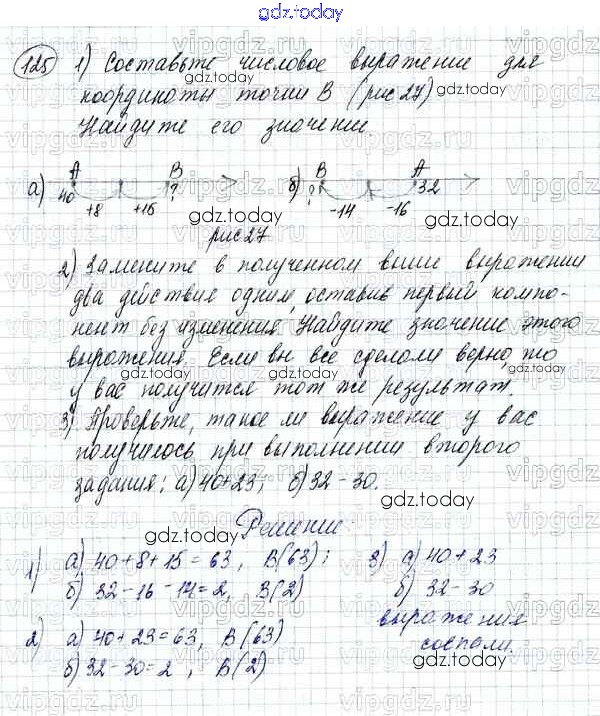 gdz.today
125 1) Составьте числовое выражение для
координаты точки В (рис 27)
Найдите его значение.
а) A B б) B A
40 ? ? 32
+8 +15 -14 -16
рис 27
2) Замените в полученном выше выражении
два действия одним, оставив первый компо-
нент без изменения. Найдите значение этого
выражения. Если вы все сделали верно, то
у вас получится тот же результат.
3) Проверьте, такое ли выражение у вас
получилось при выполнении второго
задания: а) 40+23; б) 32-30.
Решение.
1) а) 40+8+15=63, В(63);
б) 32-16-14=2, В(2)
2) а) 40+23=63, В(63)
б) 32-30=2, В(2)
3) а) 40+23
б) 32-30
выражения
совпали.